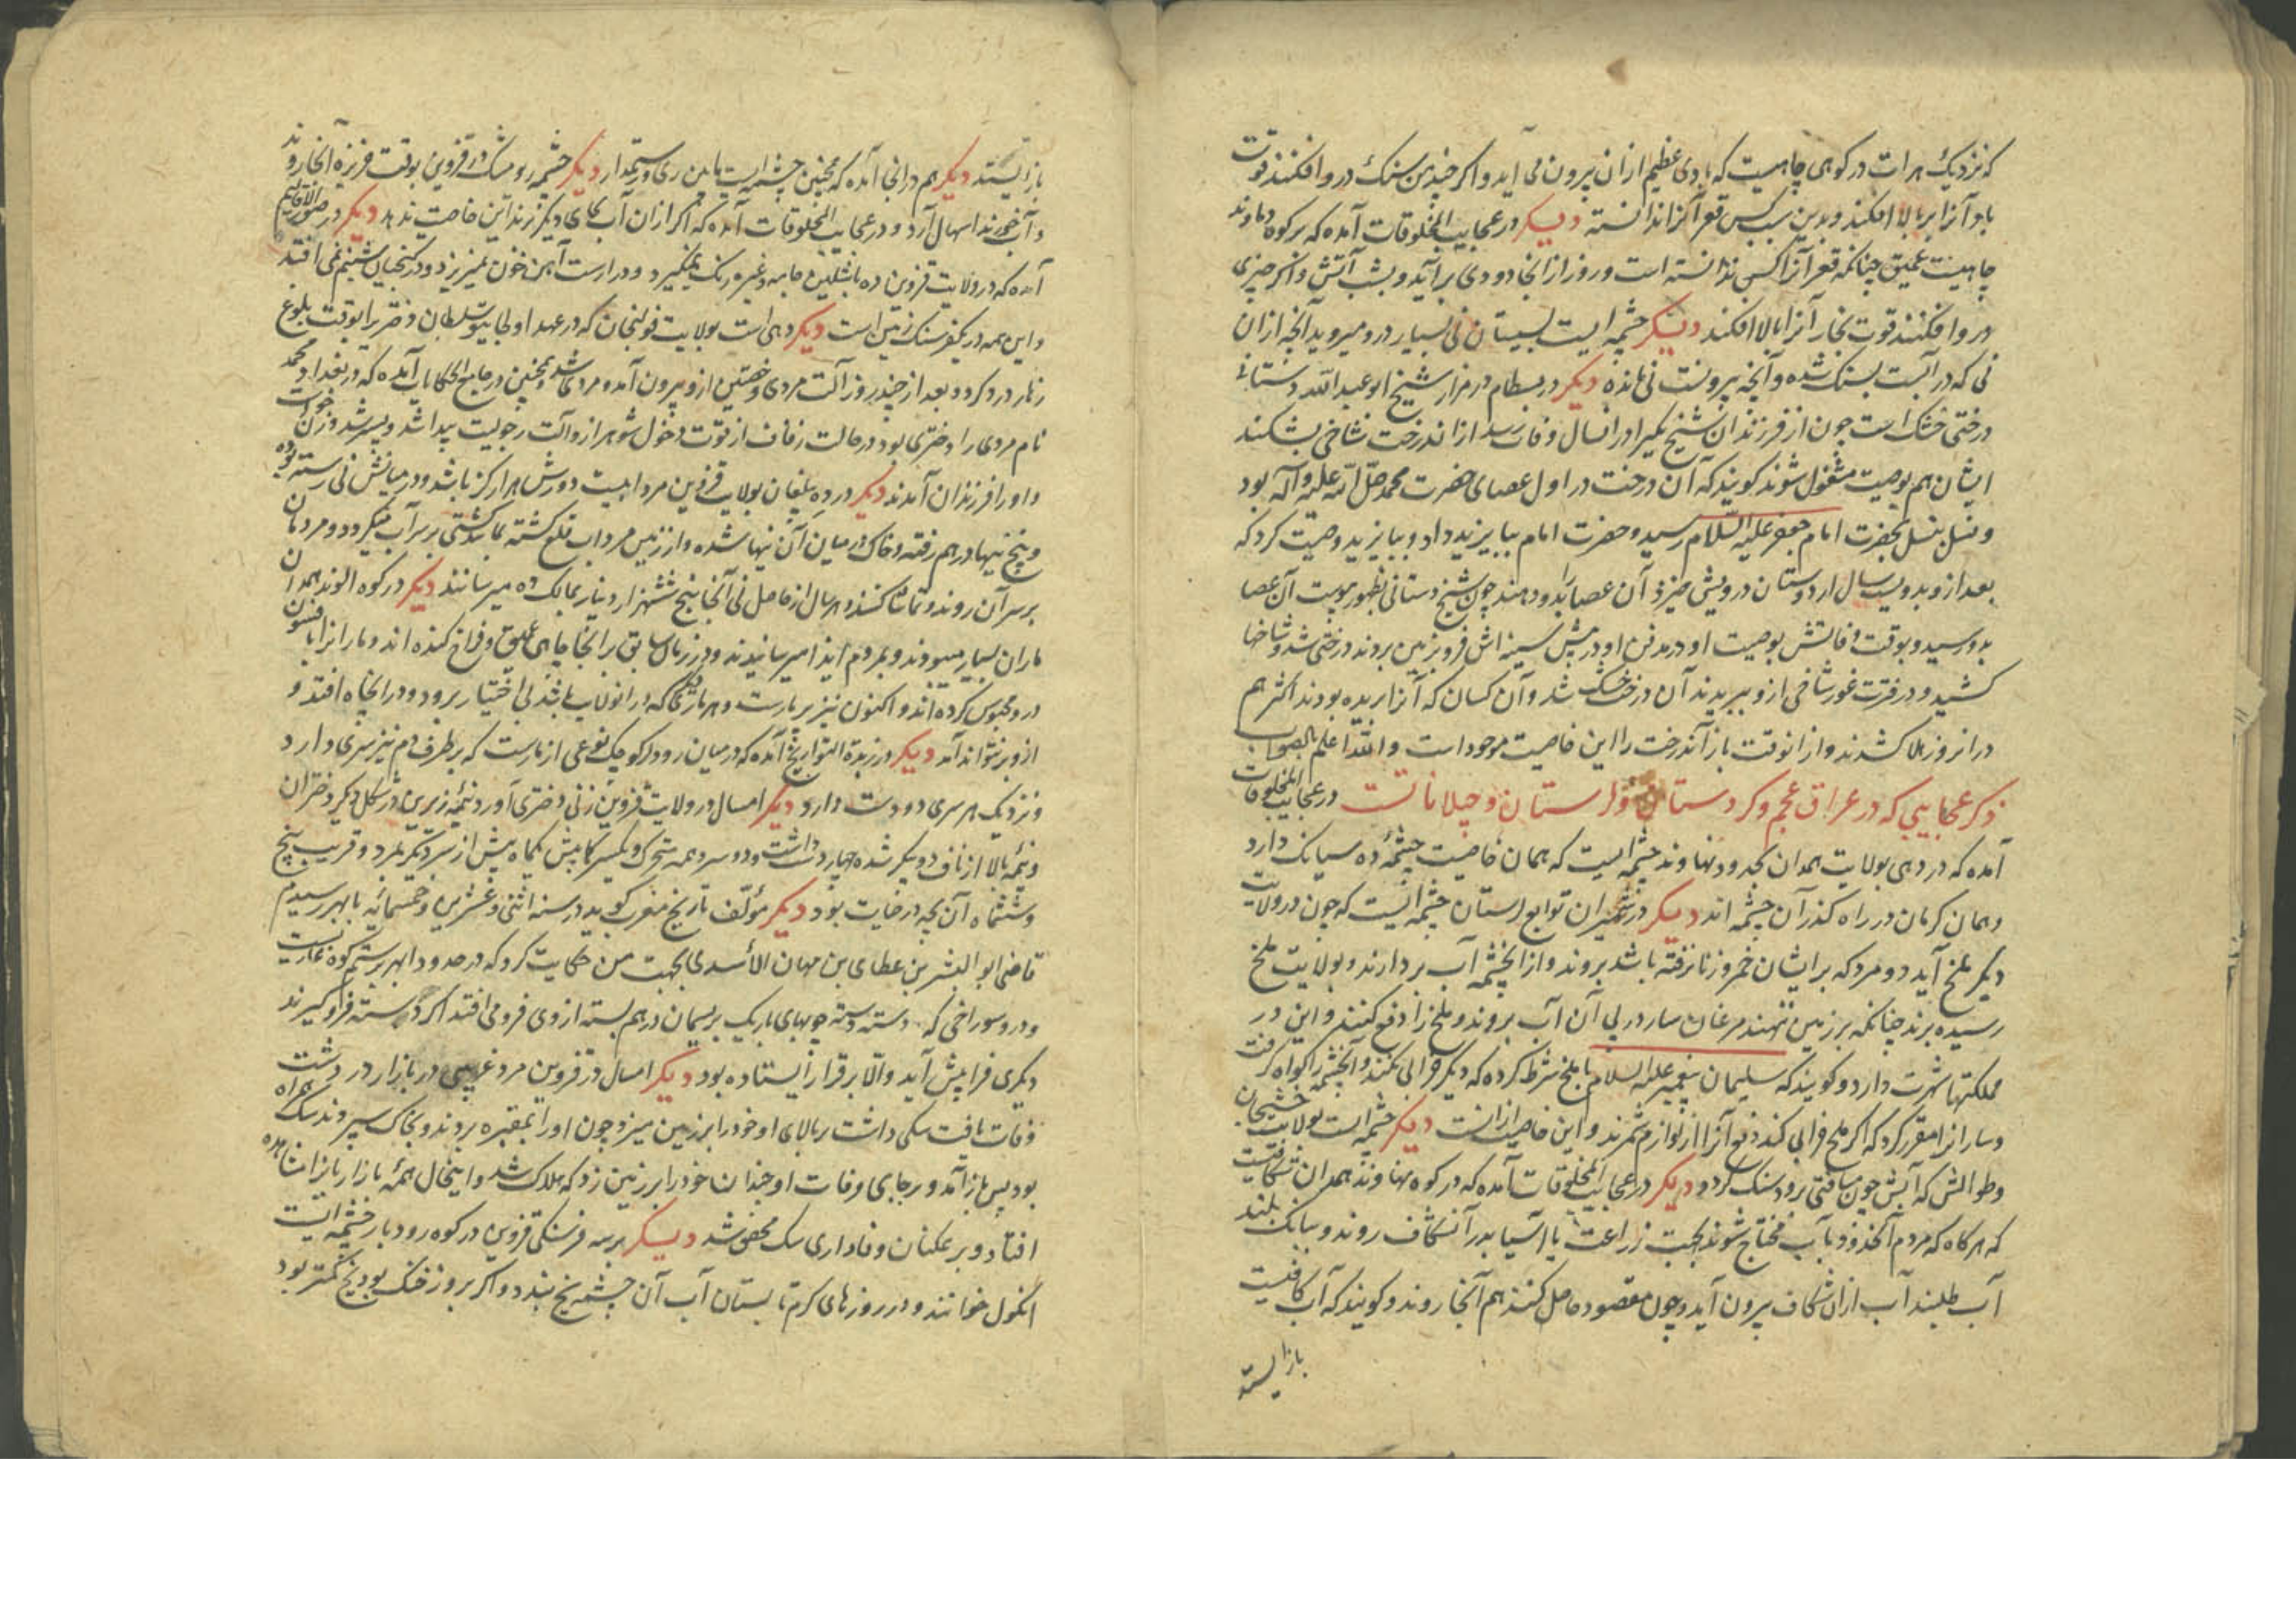 که نزدیک هرات در کوهی چاهیست که بادی عظیم از ان بیرون می آید و اکر چندین سنک درو افکنند قوت
باد آنرا بر بالا افکند و بدین سبب کس قعر آنرا ندانسته دیکر در عجایب المخلوقات آمده که بر کوه دماوند
چاهیست عمیق چنانکه قعر آنرا کس ندانسته است و روز از انجا دودی برآید و بشب آتش و اکر چیزی
درو افکنند قوت بخار آنرا ببالا افکند دیکر چشمه ایست بسیستان نی بسیار درو میروید آنچه از ان
نی که در آبست سنک شده و آنچه بیرونست نی مانده دیکر در بسطام در مزار شیخ ابو عبد الله دستانی
درختی خشک است چون از فرزندان شیخ یکیرا در انسال وفات رسد از اندرخت شاخی بشکند
ایشان هم بوصیت مشغول شوند کویند که آن درخت در اول عصای حضرت محمد صلی الله علیه و آله بود
و نسل بنسل بحضرت امام جعفر علیه السلام رسید و حضرت امام ببایزید داد و بایزید وصیت کرد که
بعد از و بدویست سال از دستان درویشی خیزد آن عصا را بدو دهند چون شیخ دستانی بظهور پیوست آن عصا
بدو رسید و بوقت وفاتش بوصیت او در مدفن او در پیش سینه اش فرو بزمین بردند درختی شد و شاخها
کشید و در فترت غور شاخی از و ببریدند آن درخت خشک شد و آن کسان که آنرا بریده بودند اکثر هم
در انروز هلاک شدند و از انوقت باز آندرخت را این خاصیت موجود است و الله اعلم بالصواب
ذکر عجایبی که در عراق عجم و کردستان و لرستان و جیلاناتست در عجایب المخلوقات
آمده که در دهی بولایت همدان بحدود نهاوند چشمه ایست که همان خاصیت چشمهٔ ده سیانک دارد
و همان کرمان در راه کذر آن چشمه اند دیکر در شمیران توابع لرستان چشمه ایست که چون در ولایت
دیکر ملخ آید دو مرد که بر ایشان خمر و زنا نرفته باشد بروند و از انچشمه آب بردارند و بولایت ملخ
رسیده برند چنانکه بر زمین ننهند مرغان سار در پی آن آب بروند و ملخ را دفع کنند و این در
مملکتها شهرت دارد و کویند که سلیمان پیغمبر علیه السلام با ملخ شرط کرده که دیکر خرابی نکند و آنچشمه را کواه کرفت
و سار انرا مقرر کرد که اکر ملخ خرابی کند دفع آنرا از لوازم شمرند و این خاصیت از انست دیکر چشمه ایست بولایت
و طوالش که آبش چون مسافتی برود سنک کردد دیکر در عجایب المخلوقات آمده که در کوه نهاوند همدان شکافیست
که هرکاه که مردم آنحدود بآب محتاج شوند بجهت زراعت یا آسیا بدر آنشکاف روند و ببانک بلند
آب طلبند آب از ان شکاف بیرون آید و چون مقصود حاصل کنند هم آنجا روند و کویند که آب کافیست
باز ایستد
باز ایستد دیکر هم در انجا آمده که همچنین چشمه ایست مابین ری و رستمدار دیکر چشمه رومشک در قزوین بوقت خربزه آنجا روند
و آب خورند اسهال آرد و در عجایب المخلوقات آمده که اکر از ان آب بجای دیکر برند این خاصیت ندهد دیکر در صور الاقالیم
آمده که در ولایت قزوین ده جامه و غیره رنک نمیکیرد و در ارست آهن خون نمیریزد و در شبنم نمی افتد
و این همه در یکفرسنک زمین است دیکر دهی است بولایت که در عهد اولجایتو سلطان دختریرا بوقت بلوغ
زهار درد کرد و بعد از چند روز آلت مردی و خصتین از و بیرون آمد و مردی شد و همچنین در جامع الحکایات آمده که در بغداد محمد
نام مردی را دختری بود در حالت زفاف از قوت دخول شوهر از و آلت رجولیت پیدا شد و پسر شد و زن خواست
و او را فرزندان آمدند دیکر در ده بولایت قزوین مردابیست دورش هزار کز باشد و در میانش نی رسته بوده
و بیخ نیها در هم رفته و خاک در میان آن نیها شده و از زمین مرداب قلع کشته بمانند کشتی بر سر آب میکردد و مردمان
بر سر آن روند و تماشا کنند و هر سال از حاصل نی آنجا پنج ششهزار دینار بمالک ده میرسانند دیکر در کوه الوند همدان
ماران بسیار میبودند و بمردم ایذا میرسانیدند و در زمان سابق بر انجا چاهی عمیق و فراخ کنده اند و مارانرا بافسون
درو محبوس کرده اند و اکنون نیز پر مارست و هر ماری که در انولایت باشد بی اختیار برود و در انچاه افتد و
از و بر نتواند آمد دیکر در زبدة التواریخ آمده که در میان رودبار کوچک نوعی از مارست که بر طرف دم نیز سری دارد
و نزدیک هر سری دو دست دارد دیکر امسال در ولایت قزوین زنی دختری آورد نیمهٔ زیرین در شکل دیکر دختران
و نیمهٔ بالا از ناف دو پیکر شده چهار دست داشت و دو سر و همه متحرک و یکسر یکماه پیش از سر دیکر بمرد و قریب پنج
و ششماه آن بچه در حیات بود دیکر مؤلف تاریخ مغرب کوید در سنه اثنی و عشرین و خمسمائه بابهر رسیدم
قاضی ابو الیسر بن عطای بن مهان الاسدی بجهت من حکایت کرد که در حدود ابهر کوه غاریست
و درو سوراخی که دسته دسته چوبهای باریک بریسمان در هم بسته از وی فرو می افتد اکر دسته فراکیرند
دیکری فرا پیش آید و الا بر قرار ایستاده بود دیکر امسال در قزوین مرد غریبی در بازار در دشت
وفات یافت سکی داشت بر بالای او خود را بر زمین میزد چون او را بمقبره بردند و بخاک سپردند سک همراه
بود پس باز آمد و بر جای وفات او چندان خود را بر زمین زد که هلاک شد و اینحال همهٔ بازاریانرا مشاهده
افتاد و بر همکنان وفاداری سک محقق شد دیکر بر سه فرسنکی قزوین در کوه رودبار چشمه ایست
انکول خوانند و در روزهای کرم تابستان آب آن چشمه یخ بندد و اکر بروز خنک بود یخ کمتر بود